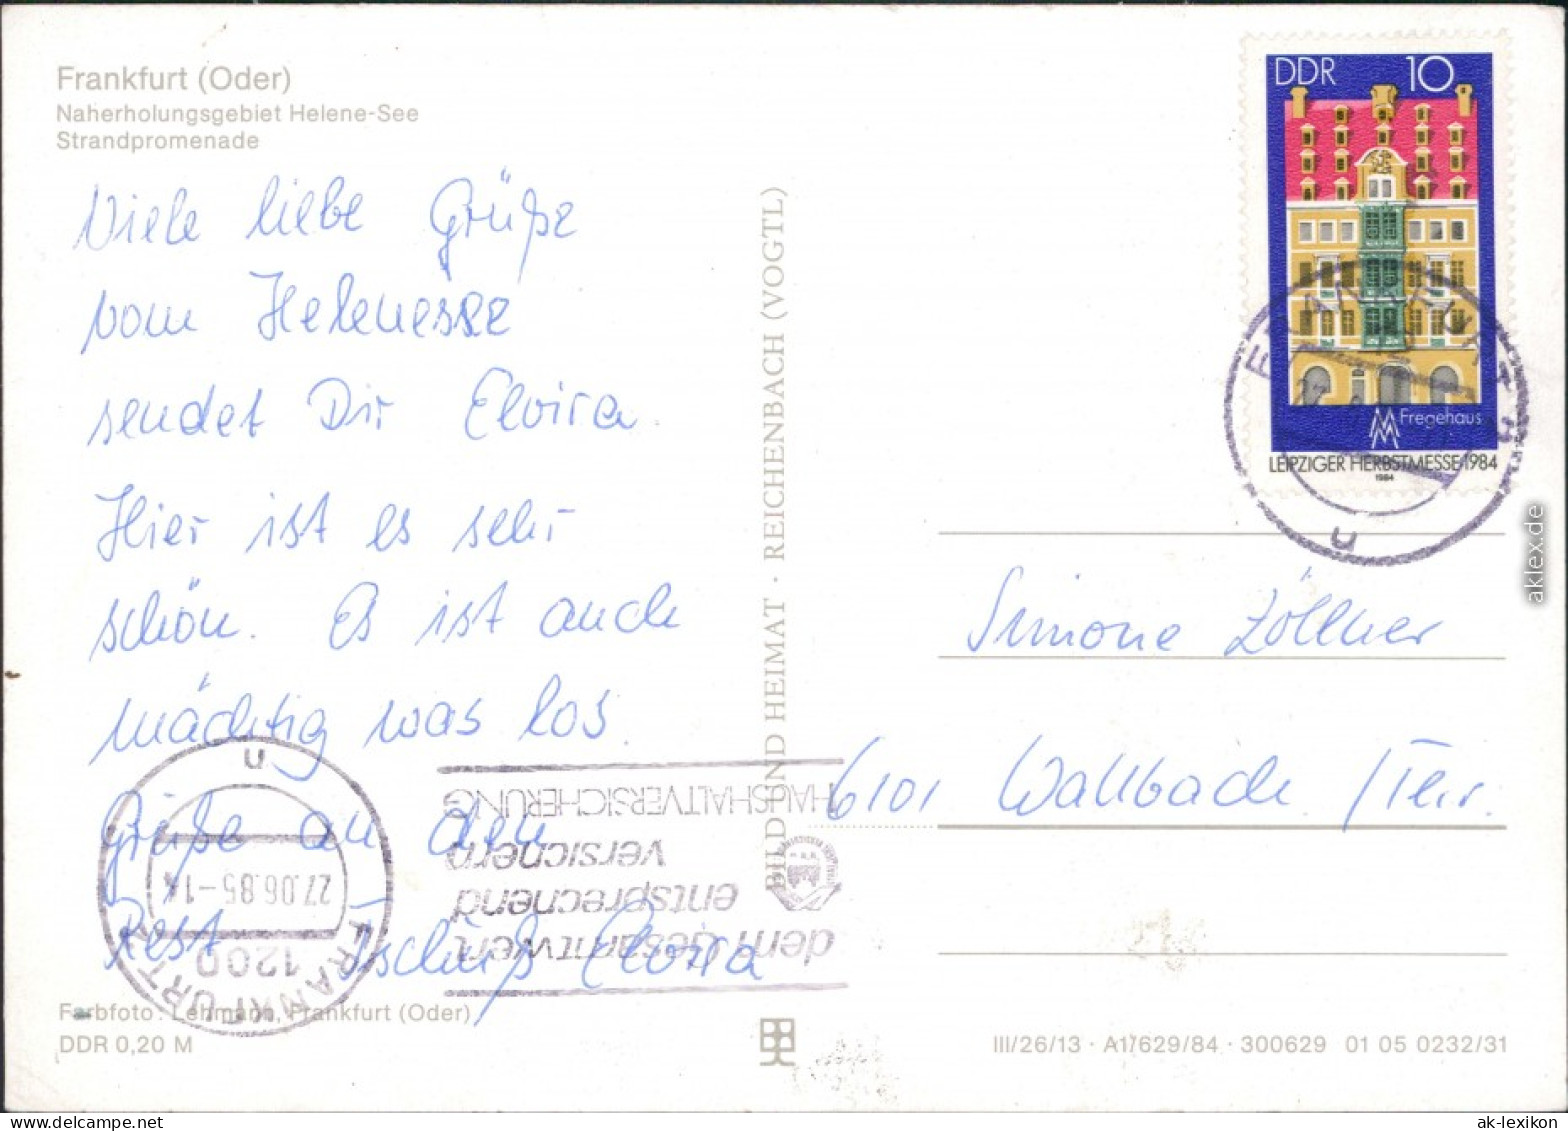 Frankfurt (Oder)
Naherholungsgebiet Helene-See
Strandpromenade
Viele liebe Grüße
vom Helenesee
sendet Dir Elvira.
Hier ist es sehr
schön. Es ist auch
mächtig was los
Grüße an den
Rest Tschüß Elvira
Farbfoto: Lehmann, Frankfurt (Oder)
DDR 0,20 M
BILD UND HEIMAT · REICHENBACH (VOGTL)
DDR 10
MM Fregehaus
LEIPZIGER HERBSTMESSE 1984
1984
FRANKFURT
n
Simone Zöllner
6101 Wallbach /Thür.
dem Gesamtwert
entsprechend
versichern
HAUSHALTVERSICHERUNG
FRANKFURT
1200
27.06.85-14
n
III/26/13 · A1/629/84 · 300629 01 05 0232/31
aklex.de
ak-lexikon